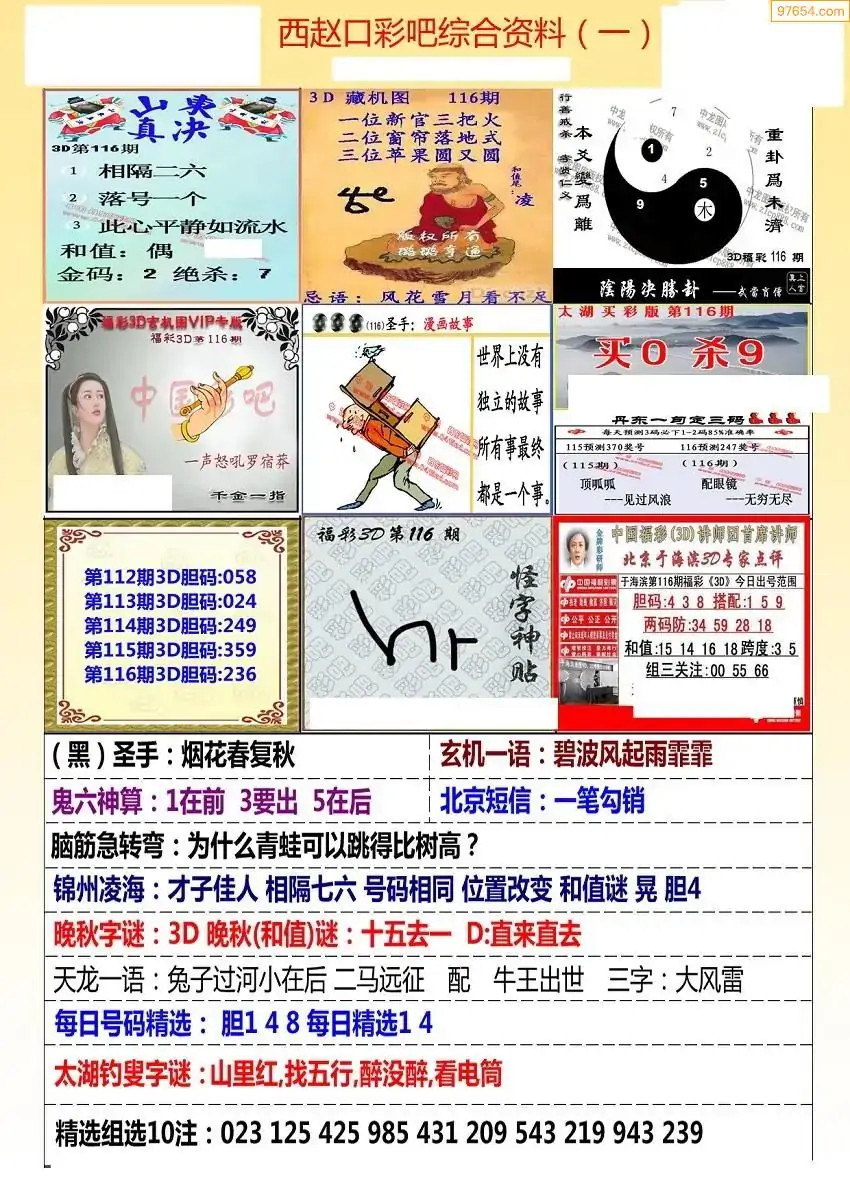 97654.com
西赵口彩吧综合资料（一）
山東
真决
3D第116期
1 相隔二六
2 落号一个
3 此心平静如流水
和值：偶
金码：2 绝杀：7
3D 藏机图 116期
一位新官三把火
二位窗帘落地式
三位苹果圆又圆
和值尾：凌
版权所有
璐璐亨通
忌语：风花雪月看不足
行善戒杀 孝贤仁义
本爻變爲離
重卦爲未濟
7
1
2
4
5
9
木
3D福彩 116 期
陰陽決勝卦 ——武當肖僧
福彩3D玄机图VIP专版
福彩3D第116期
中国彩吧
一声怒吼罗宿莽
千金一指
(116)圣手：漫画故事
世界上没有
独立的故事
所有事最终
都是一个事。
太湖买彩版 第116期
买0 杀9
丹东一句定三码
每天预测3码必下1-2码85%准确率
115预测370奖号 116预测247奖号
(115期) (116期)
顶呱呱 配眼镜
---见过风浪 ---无穷无尽
第112期3D胆码:058
第113期3D胆码:024
第114期3D胆码:249
第115期3D胆码:359
第116期3D胆码:236
福彩3D第116 期
怪字神贴
金牌彩研师
中国福彩(3D)讲师团首席讲师
北京于海滨3D专家点评
中国福利彩票
于海滨第116期福彩《3D》今日出号范围
胆码:4 3 8 搭配:1 5 9
两码防:34 59 28 18
和值:15 14 16 18 跨度:3 5
组三关注:00 55 66
公平 公正 公开
（黑）圣手：烟花春复秋
玄机一语：碧波风起雨霏霏
鬼六神算：1在前 3要出 5在后
北京短信：一笔勾销
脑筋急转弯：为什么青蛙可以跳得比树高？
锦州凌海：才子佳人 相隔七六 号码相同 位置改变 和值谜 晃 胆4
晚秋字谜：3D 晚秋(和值)谜：十五去一 D:直来直去
天龙一语：兔子过河小在后 二马远征 配 牛王出世 三字：大风雷
每日号码精选： 胆1 4 8 每日精选1 4
太湖钓叟字谜：山里红,找五行,醉没醉,看电筒
精选组选10注：023 125 425 985 431 209 543 219 943 239